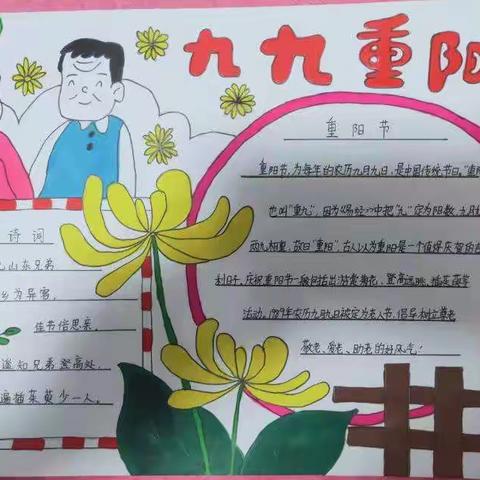 九九重阳
重阳节
重阳节,为每年的农历九月九日,是中国传统节日。"重阳
也叫"重九",因为《易经》中把"九"定为阳数,九月
两九相重,故曰"重阳",古人认为重阳是一个值得庆贺的吉
利日子,庆祝重阳节一般包括出游赏菊花,登高远眺,插茱萸等
活动,1989年农历九月九日被定为老人节,倡导
敬老、爱老、助老的好风气!
诗词
山东兄弟
乡为异客,
佳节倍思亲。
遥知兄弟登高处,
遍插茱萸少一人。